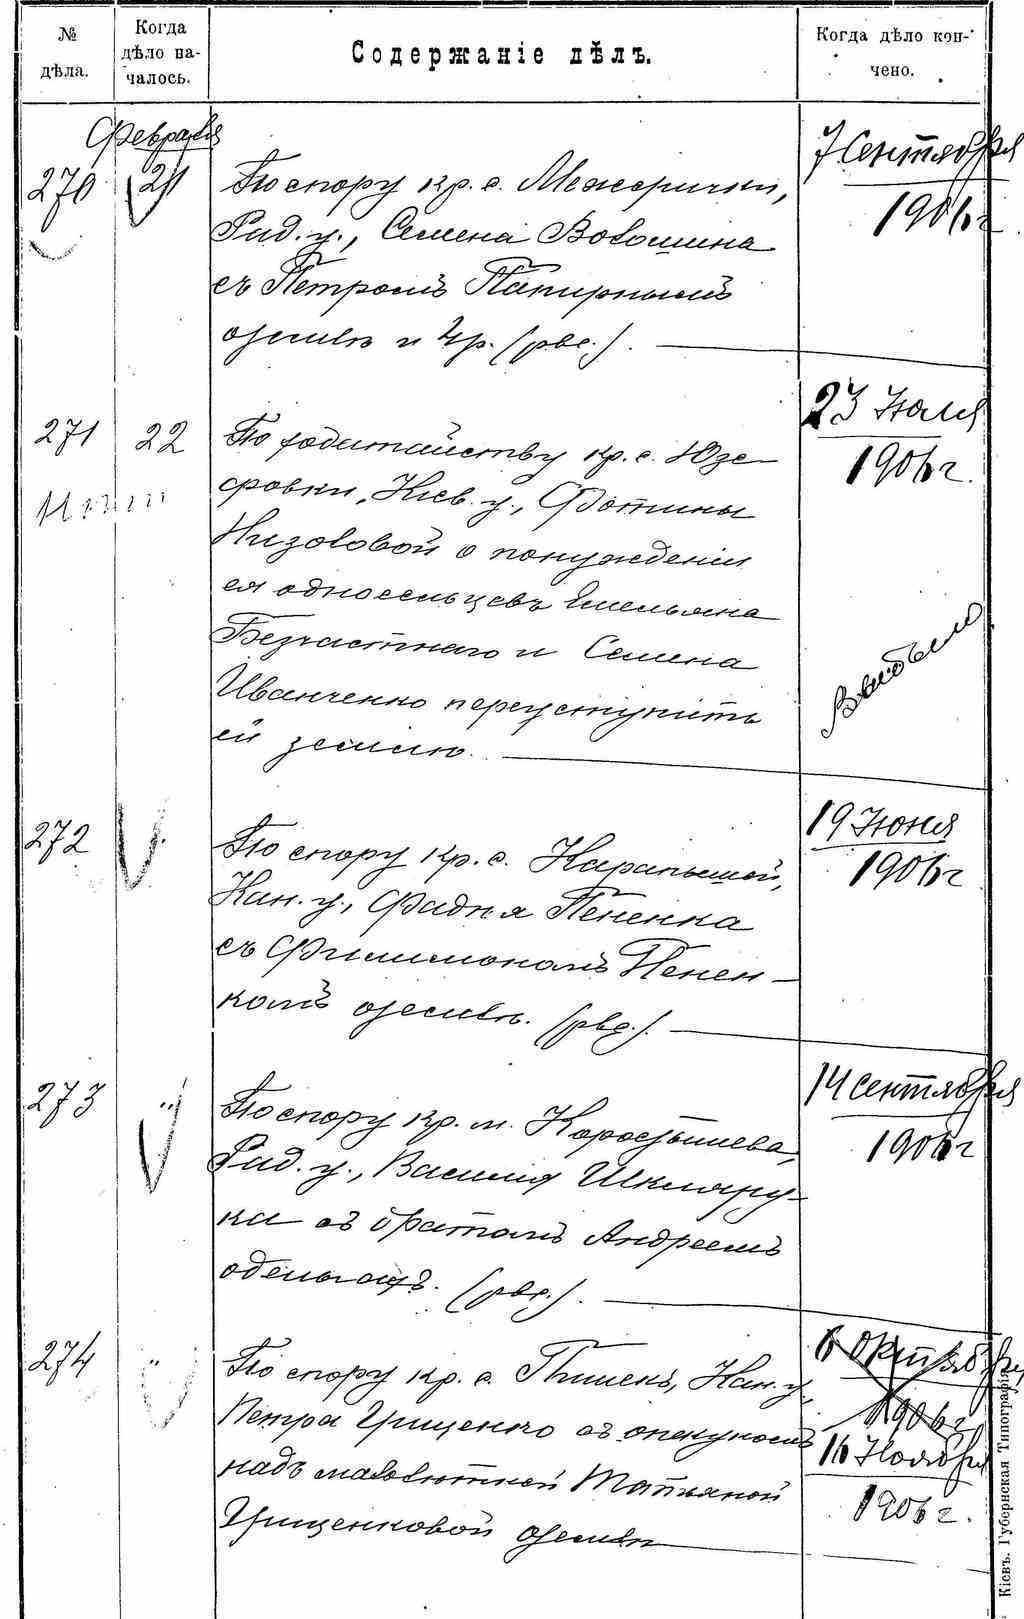 № дѣла.
Когда дѣло на-
чалось.
Содержаніе дѣлъ.
Когда дѣло кон-
чено.
Февраля
270
21
По спору кр. с. Межирички,
Рад. у., Семена Волошина
съ Петромъ Папирнымъ
о землѣ и др. (рвс.).
7 Сентября
1906 г.
271
22
По ходатайству кр. с. Юзе-
фовки, Кіев. у., Фотины
Низоловой о понужденіи
ея односельцевъ Емельяна
Безчастнаго и Семена
Иванченко переуступить
ей землю.
23 Юля
1906 г.
Выбыло
272
По спору кр. с. Карапышей,
Кан. у., Фадея Пененка
съ Филимономъ Пенен-
комъ о землѣ. (рвд.).
19 Юня
1906 г
273
"
По спору кр. м. Коростышева,
Рад. у., Василія Шкляру-
ка съ братомъ Андреемъ
о деньгахъ. (рвс.).
14 Сентября
1906 г
274
"
По спору кр. с. Пишекъ, Кан. у.,
Петра Грищенко съ опекуномъ
надъ малолѣтней Татьяной
Грищенковой о землѣ
6 Октября
1906 г.
16 Ноября
1906 г.
Кіевъ. Губернская Типографія.